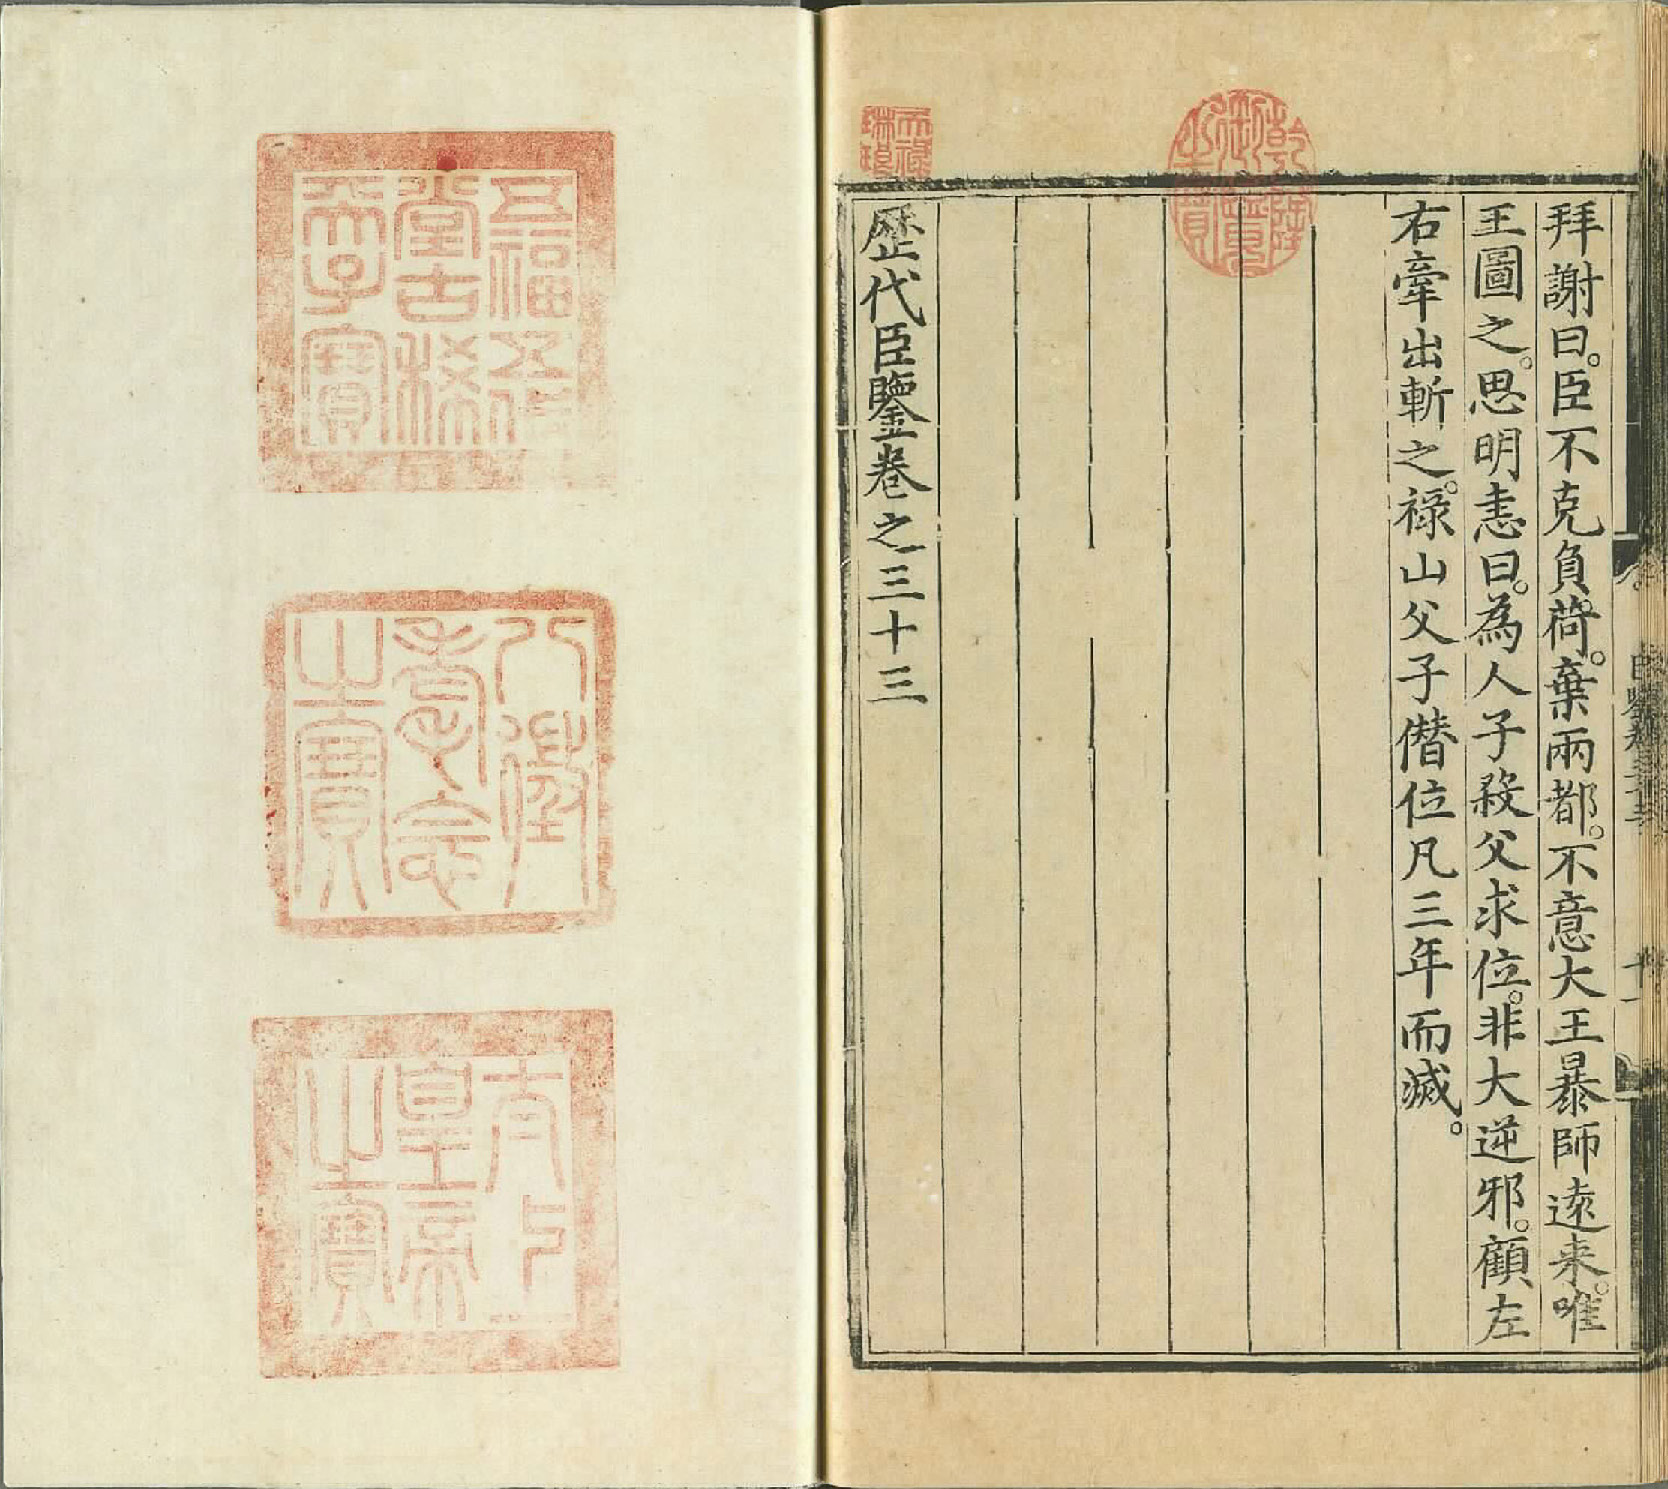 拜謝曰。臣不克負荷。棄兩都。不意大王暴師遠来。唯
王圖之。思明恚曰。為人子殺父求位。非大逆邪。顧左
右牽出斬之。禄山父子僭位凡三年而滅。
歷代臣鑒卷之三十三
乾隆御覽之寶
天祿琳琅
五福五代堂古稀天子寶
八徵耄念之寶
太上皇帝之寶